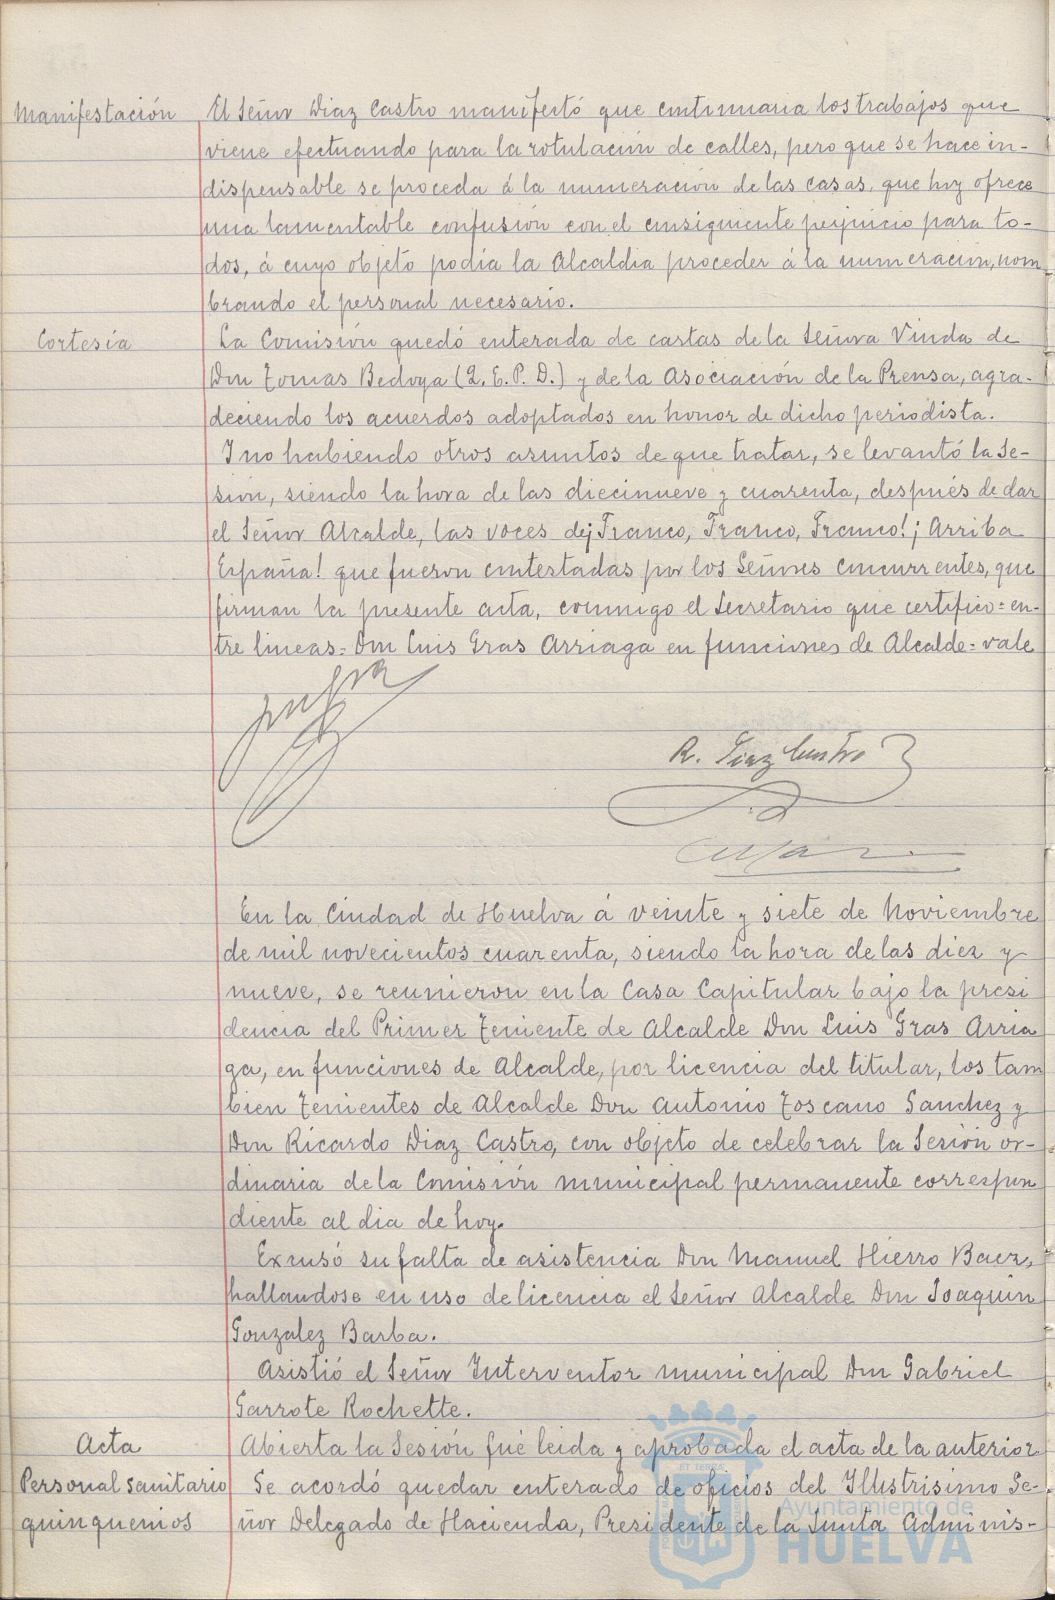 Manifestación El Señor Diaz Castro manifestó que continuaria los trabajos que
viene efectuando para la rotulación de calles, pero que se hace in-
dispensable se proceda á la numeración de las casas, que hoy ofrece
una lamentable confusión con el consiguiente perjuicio para to-
dos, á cuyo objeto podia la Alcaldia proceder á la numeración, nom
brando el personal necesario.
Cortesía La Comisión quedó enterada de cartas de la Señora Viuda de
Don Tomas Bedoya (Q.E.P.D.) y de la Asociación de la Prensa, agra-
deciendo los acuerdos adoptados en honor de dicho periodista.
Y no habiendo otros asuntos de que tratar, se levantó la Se-
sión, siendo la hora de las diecinueve y cuarenta, después de dar
el Señor Alcalde, las voces de ¡Franco, Franco, Franco! ¡Arriba
España! que fueron contestadas por los Señores concurrentes, que
firman la presente acta, conmigo el Secretario que certifico = en-
tre lineas = Don Luis Gras Arriaga en funciones de Alcalde = vale
R. Diaz Castro
En la Ciudad de Huelva á veinte y siete de Noviembre
de mil novecientos cuarenta, siendo la hora de las diez y
nueve, se reunieron en la Casa Capitular bajo la presi
dencia del Primer Teniente de Alcalde Don Luis Gras Arria
ga, en funciones de Alcalde, por licencia del titular, los tam
bien Tenientes de Alcalde Don Antonio Toscano Sanchez y
Don Ricardo Diaz Castro, con objeto de celebrar la Sesión or-
dinaria de la Comisión municipal permanente correspon
diente al dia de hoy.
Excusó su falta de asistencia Don Manuel Hierro Baez,
hallandose en uso de licencia el Señor Alcalde Don Joaquin
Gonzalez Barba.
Asistió el Señor Interventor municipal Don Gabriel
Garrote Rochette.
Acta Abierta la Sesión fué leida y aprobada el acta de la anterior
Personal sanitario Se acordó quedar enterado de oficios del Illustrisimo Se-
quinquenios ñor Delegado de Hacienda, Presidente de la Junta Adminis-
Ayuntamiento de
HUELVA